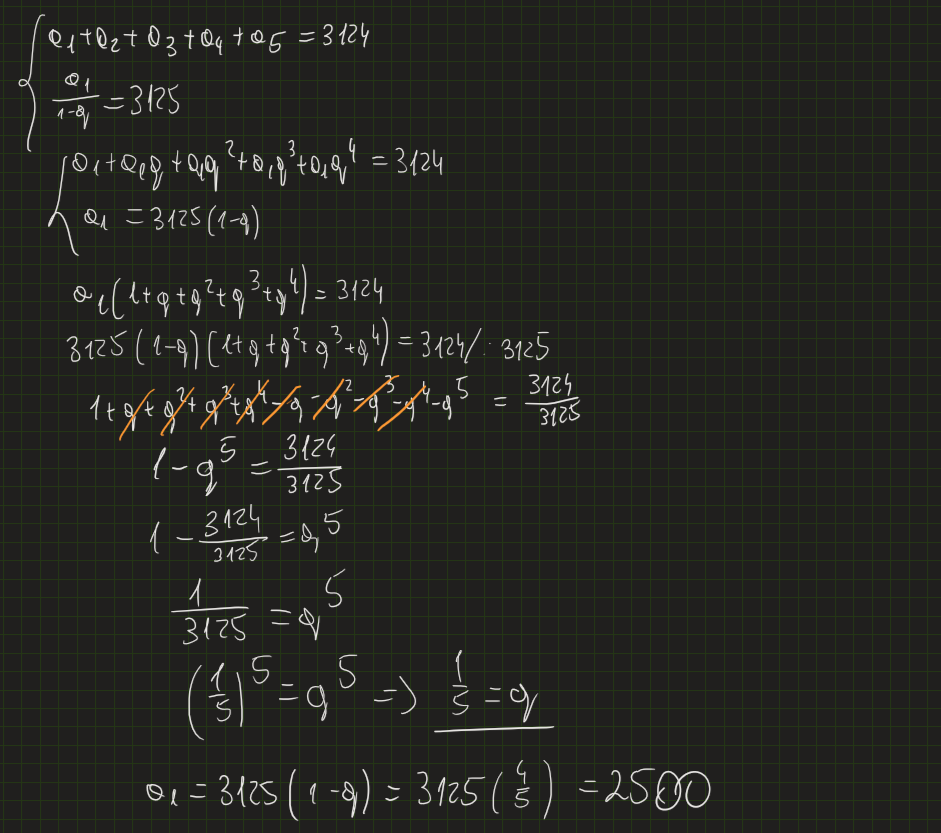 a₁+a₂+a₃+a₄+a₅=3124
a₁/(1-q)=3125
a₁+a₁q+a₁q²+a₁q³+a₁q⁴=3124
a₁=3125(1-q)
a₁(1+q+q²+q³+q⁴)=3124
3125(1-q)(1+q+q²+q³+q⁴)=3124/:3125
1+q+q²+q³+q⁴-q-q²-q³-q⁴-q⁵=3124/3125
1-q⁵=3124/3125
1-3124/3125=q⁵
1/3125=q⁵
(1/5)⁵=q⁵=>1/5=q
a₁=3125(1-q)=3125(4/5)=2500